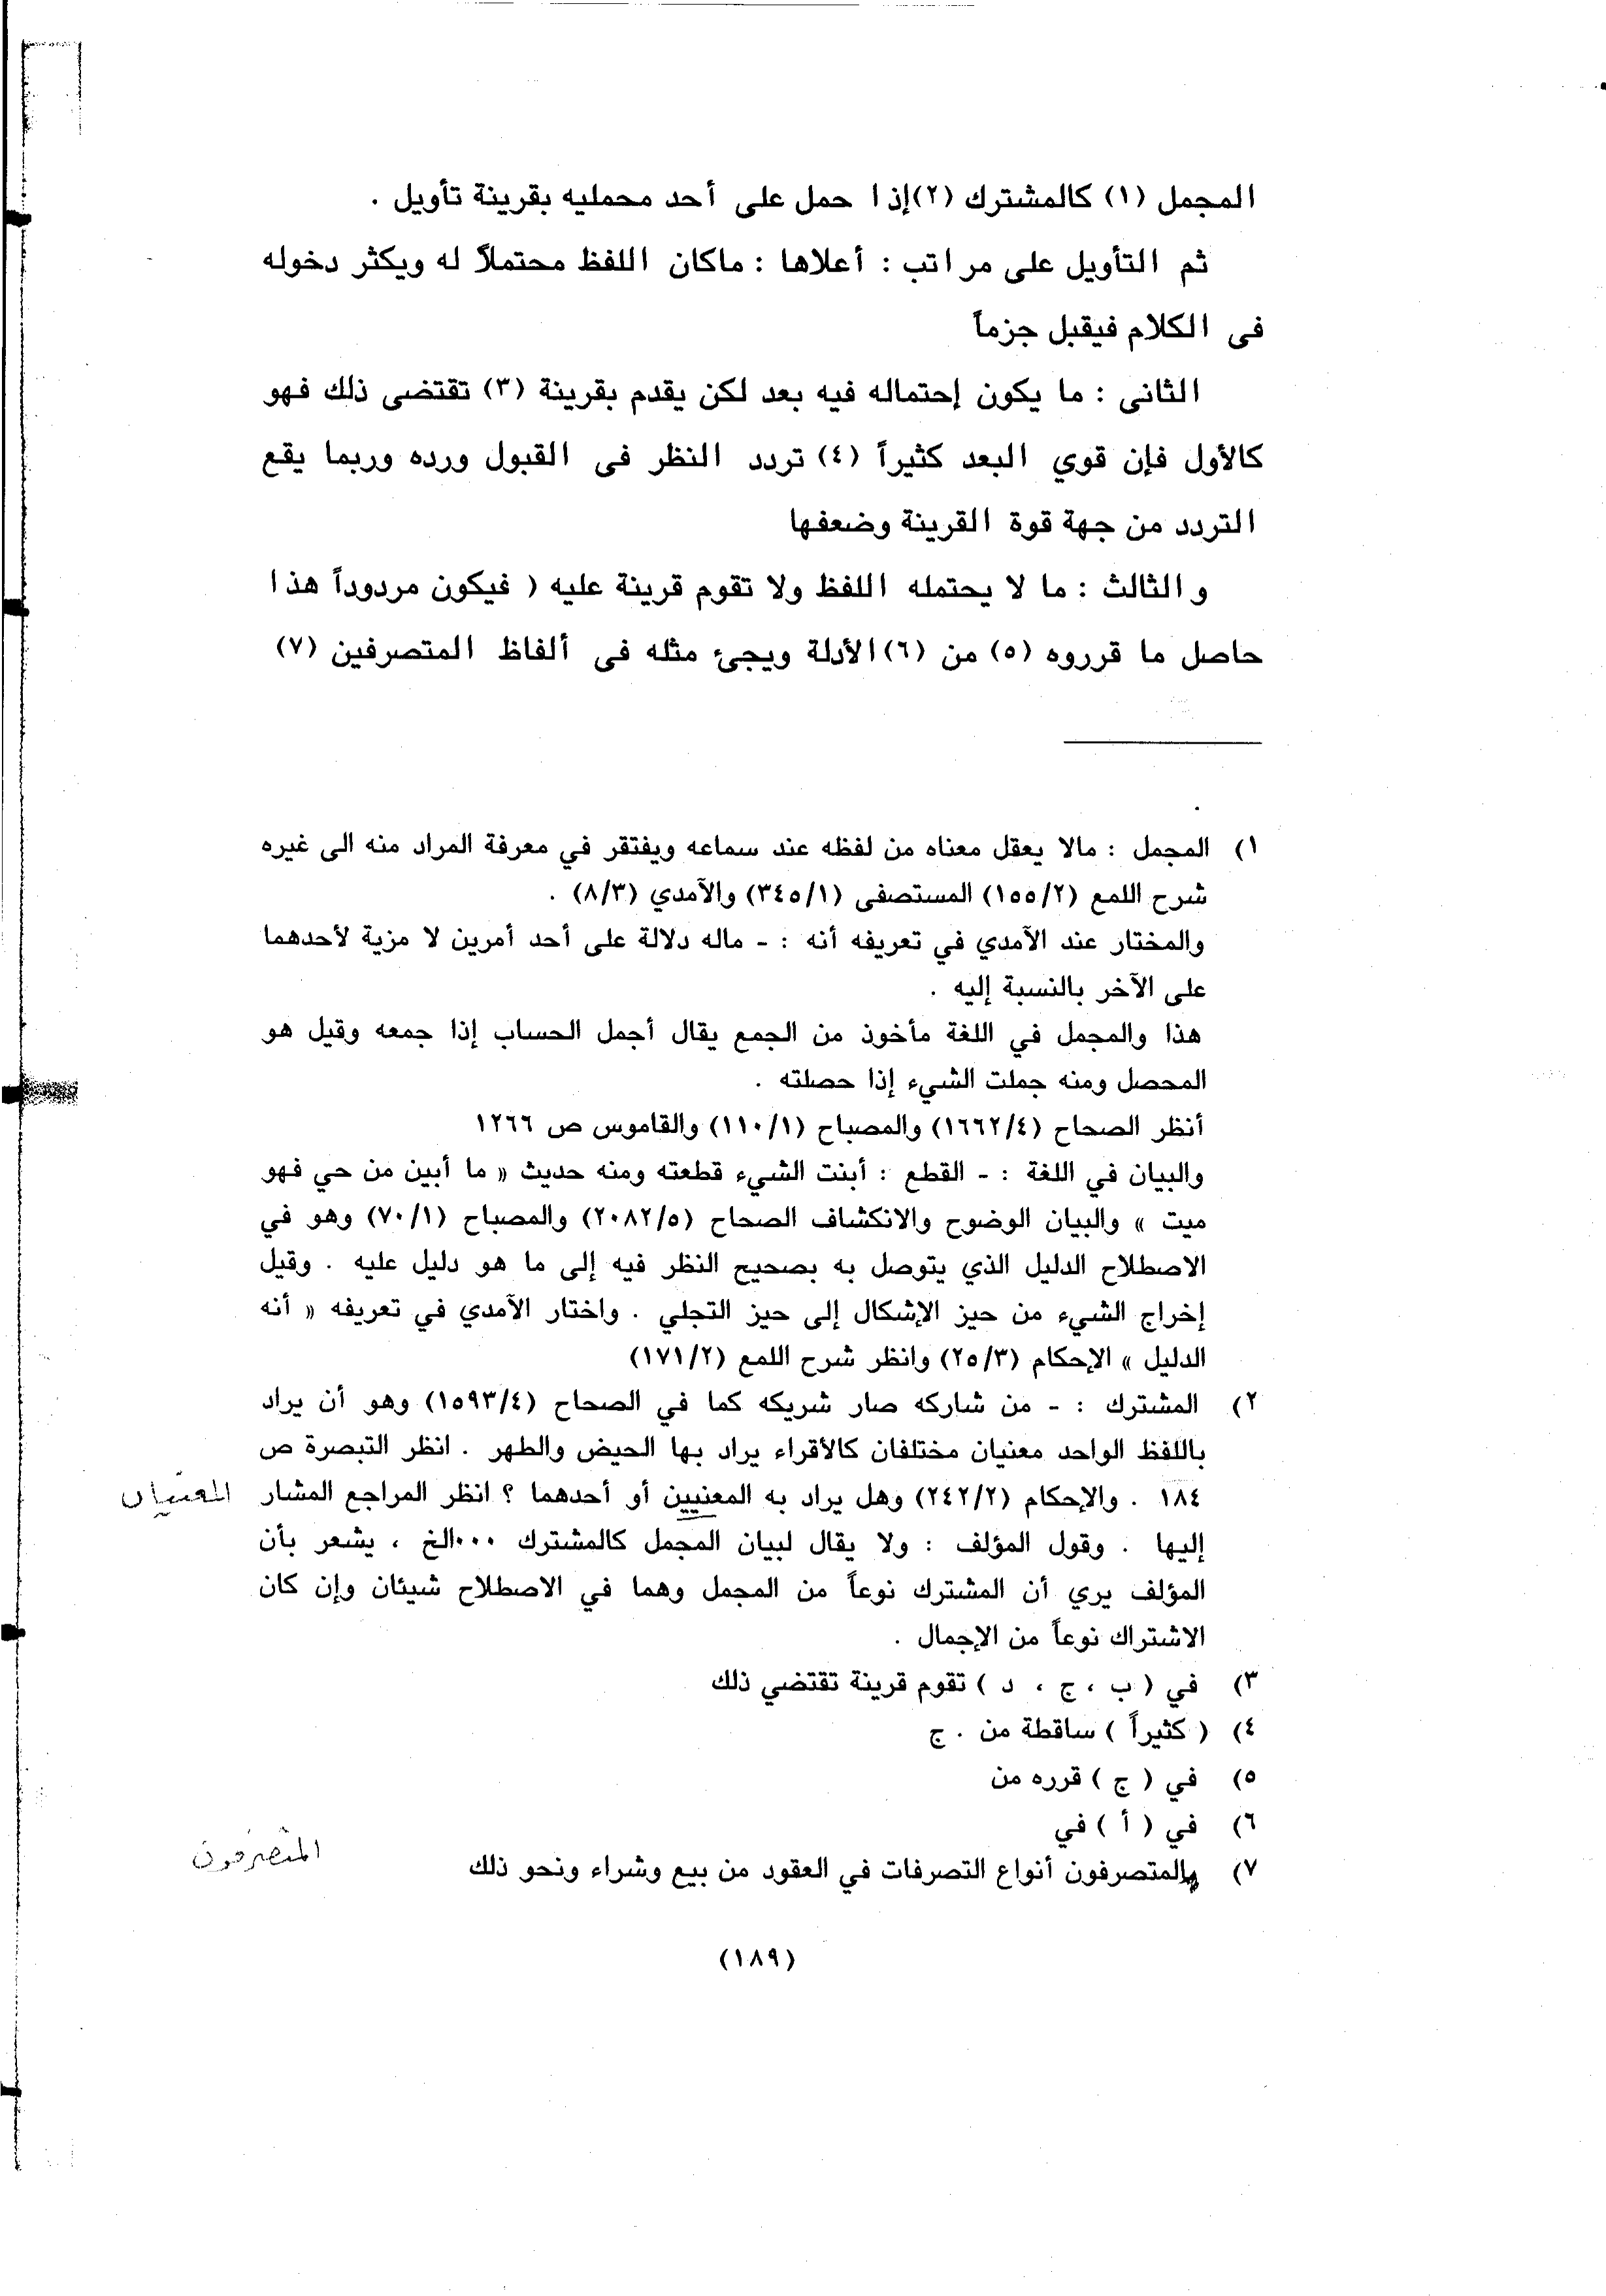 المجمل (١) كالمشترك (٢) إذا حمل على أحد محمليه بقرينة تأويل .
ثم التأويل على مراتب : أعلاها : ماكان اللفظ محتملاً له ويكثر دخوله
فى الكلام فيقبل جزماً
الثانى : ما يكون إحتماله فيه بعد لكن يقدم بقرينة (٣) تقتضى ذلك فهو
كالأول فإن قوي البعد كثيراً (٤) تردد النظر فى القبول ورده وربما يقع
التردد من جهة قوة القرينة وضعفها
والثالث : ما لا يحتمله اللفظ ولا تقوم قرينة عليه ( فيكون مردوداً هذا
حاصل ما قرروه (٥) من (٦) الأدلة ويجئ مثله فى ألفاظ المتصرفين (٧)
١) المجمل : مالا يعقل معناه من لفظه عند سماعه ويفتقر في معرفة المراد منه الى غيره
شرح اللمع (١٥٥/٢) المستصفى (٣٤٥/١) والآمدي (٨/٣) .
والمختار عند الآمدي في تعريفه أنه : - ماله دلالة على أحد أمرين لا مزية لأحدهما
على الآخر بالنسبة إليه .
هذا والمجمل في اللغة مأخون من الجمع يقال أجمل الحساب إذا جمعه وقيل هو
المحصل ومنه جملت الشيء إذا حصلته .
أنظر الصحاح (١٦٦٢/٤) والمصباح (١١٠/١) والقاموس ص ١٢٦٦
والبيان في اللغة : - القطع : أبنت الشيء قطعته ومنه حديث « ما أبين من حي فهو
ميت » والبيان الوضوح والانكشاف الصحاح (٢٠٨٢/٥) والمصباح (٧٠/١) وهو في
الاصطلاح الدليل الذي يتوصل به بصحيح النظر فيه إلى ما هو دليل عليه . وقيل
إخراج الشيء من حيز الإشكال إلى حيز التجلي . واختار الآمدي في تعريفه « أنه
الدليل » الإحكام (٢٥/٣) وانظر شرح اللمع (١٧١/٢)
٢) المشترك : - من شاركه صار شريكه كما في الصحاح (١٥٩٣/٤) وهو أن يراد
باللفظ الواحد معنيان مختلفان كالأقراء يراد بها الحيض والطهر . انظر التبصرة ص
١٨٤ . والإحكام (٢٤٢/٢) وهل يراد به المعنيين أو أحدهما ؟ انظر المراجع المشار المعنيان
إليها . وقول المؤلف : ولا يقال لبيان المجمل كالمشترك ٠٠٠الخ ، يشعر بأن
المؤلف يري أن المشترك نوعاً من المجمل وهما في الاصطلاح شيئان وإن كان
الاشتراك نوعاً من الإجمال .
٣) في ( ب ، ج ، د ) تقوم قرينة تقتضي ذلك
٤) ( كثيراً ) ساقطة من . ج
٥) في ( ج ) قرره من
٦) في ( أ ) في
المتصرفون
٧) والمتصرفون أنواع التصرفات في العقود من بيع وشراء ونحو ذلك
(١٨٩)